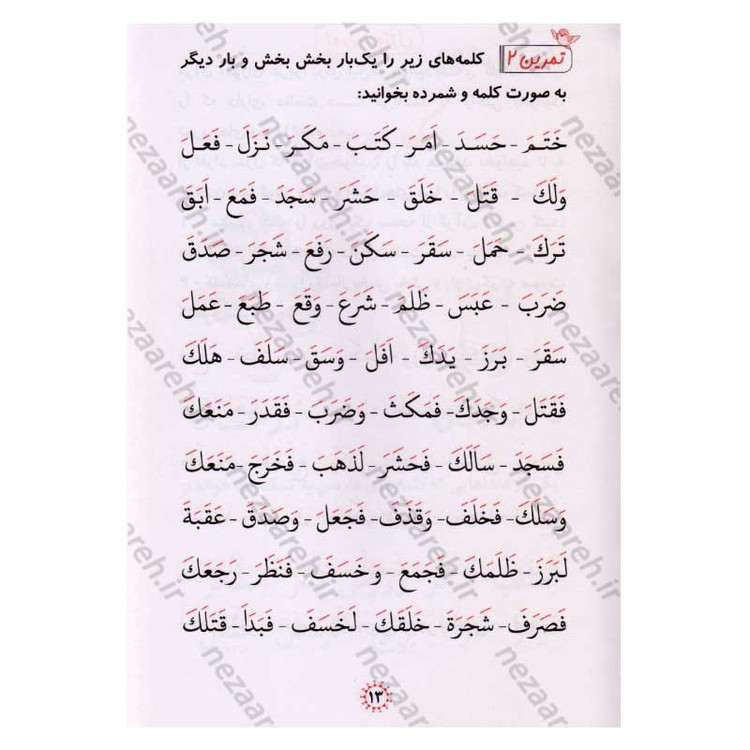 تمرین ۲ کلمه‌های زیر را یک‌بار بخش بخش و بار دیگر
به صورت کلمه و شمرده بخوانید:
خَتَمَ - حَسَدَ - اَمَرَ - كَتَبَ - مَكَرَ - نَزَلَ - فَعَلَ
وَلَكَ - قَتَلَ - خَلَقَ - حَشَرَ - سَجَدَ - فَمَعَ - اَبَقَ
تَرَكَ - حَمَلَ - سَقَرَ - سَكَنَ - رَفَعَ - شَجَرَ - صَدَقَ
ضَرَبَ - عَبَسَ - ظَلَمَ - شَرَعَ - وَقَعَ - طَبَعَ - عَمَلَ
سَقَرَ - بَرَزَ - يَدَكَ - اَفَلَ - وَسَقَ - سَلَفَ - هَلَكَ
فَقَتَلَ - وَجَدَكَ - فَمَكَثَ - وَضَرَبَ - فَقَدَرَ - مَنَعَكَ
فَسَجَدَ - سَاَلَكَ - فَحَشَرَ - لَذَهَبَ - فَخَرَجَ - مَنَعَكَ
وَسَلَكَ - فَخَلَفَ - وَقَذَفَ - فَجَعَلَ - وَصَدَقَ - عَقَبَةَ
لَبَرَزَ - ظَلَمَكَ - فَجَمَعَ - وَخَسَفَ - فَنَظَرَ - رَجَعَكَ
فَصَرَفَ - شَجَرَةَ - خَلَقَكَ - لَخَسَفَ - فَبَدَاَ - قَتَلَكَ
۱۳
nezaareh.ir